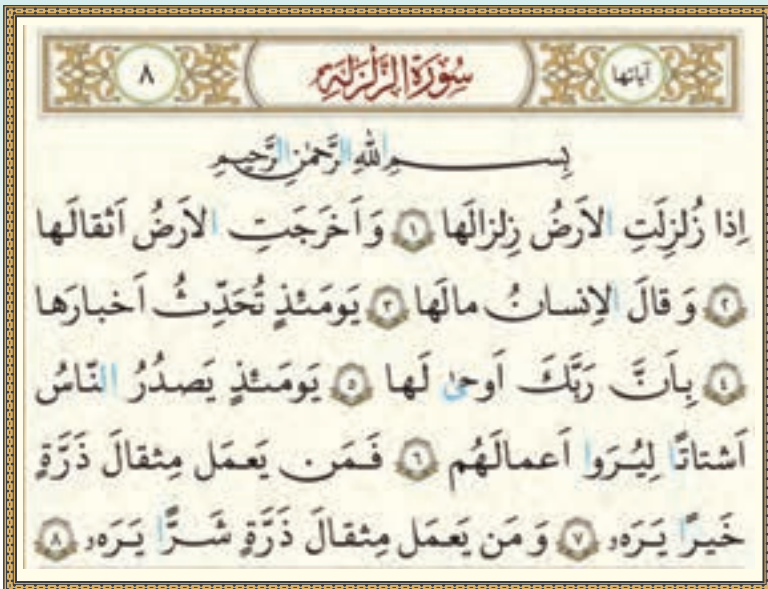 آیاتها سُورَةُ الزَّلْزَلَةِ ۸
بِسمِ اللهِ الرَّحمٰنِ الرَّحیمِ
اِذا زُلزِلَتِ الاَرضُ زِلزالَها ﴿١﴾ وَ اَخرَجَتِ الاَرضُ اَثقالَها
﴿٢﴾ وَ قالَ الاِنسانُ مالَها ﴿٣﴾ یَومَئِذٍ تُحَدِّثُ اَخبارَها
﴿٤﴾ بِاَنَّ رَبَّكَ اَوحىٰ لَها ﴿٥﴾ یَومَئِذٍ یَصدُرُ النّاسُ
اَشتاتًا لِیُرَوا اَعمالَهُم ﴿٦﴾ فَمَن یَعمَل مِثقالَ ذَرَّةٍ
خَیرًا یَرَه, ﴿٧﴾ وَ مَن یَعمَل مِثقالَ ذَرَّةٍ شَرًّا یَرَه, ﴿٨﴾